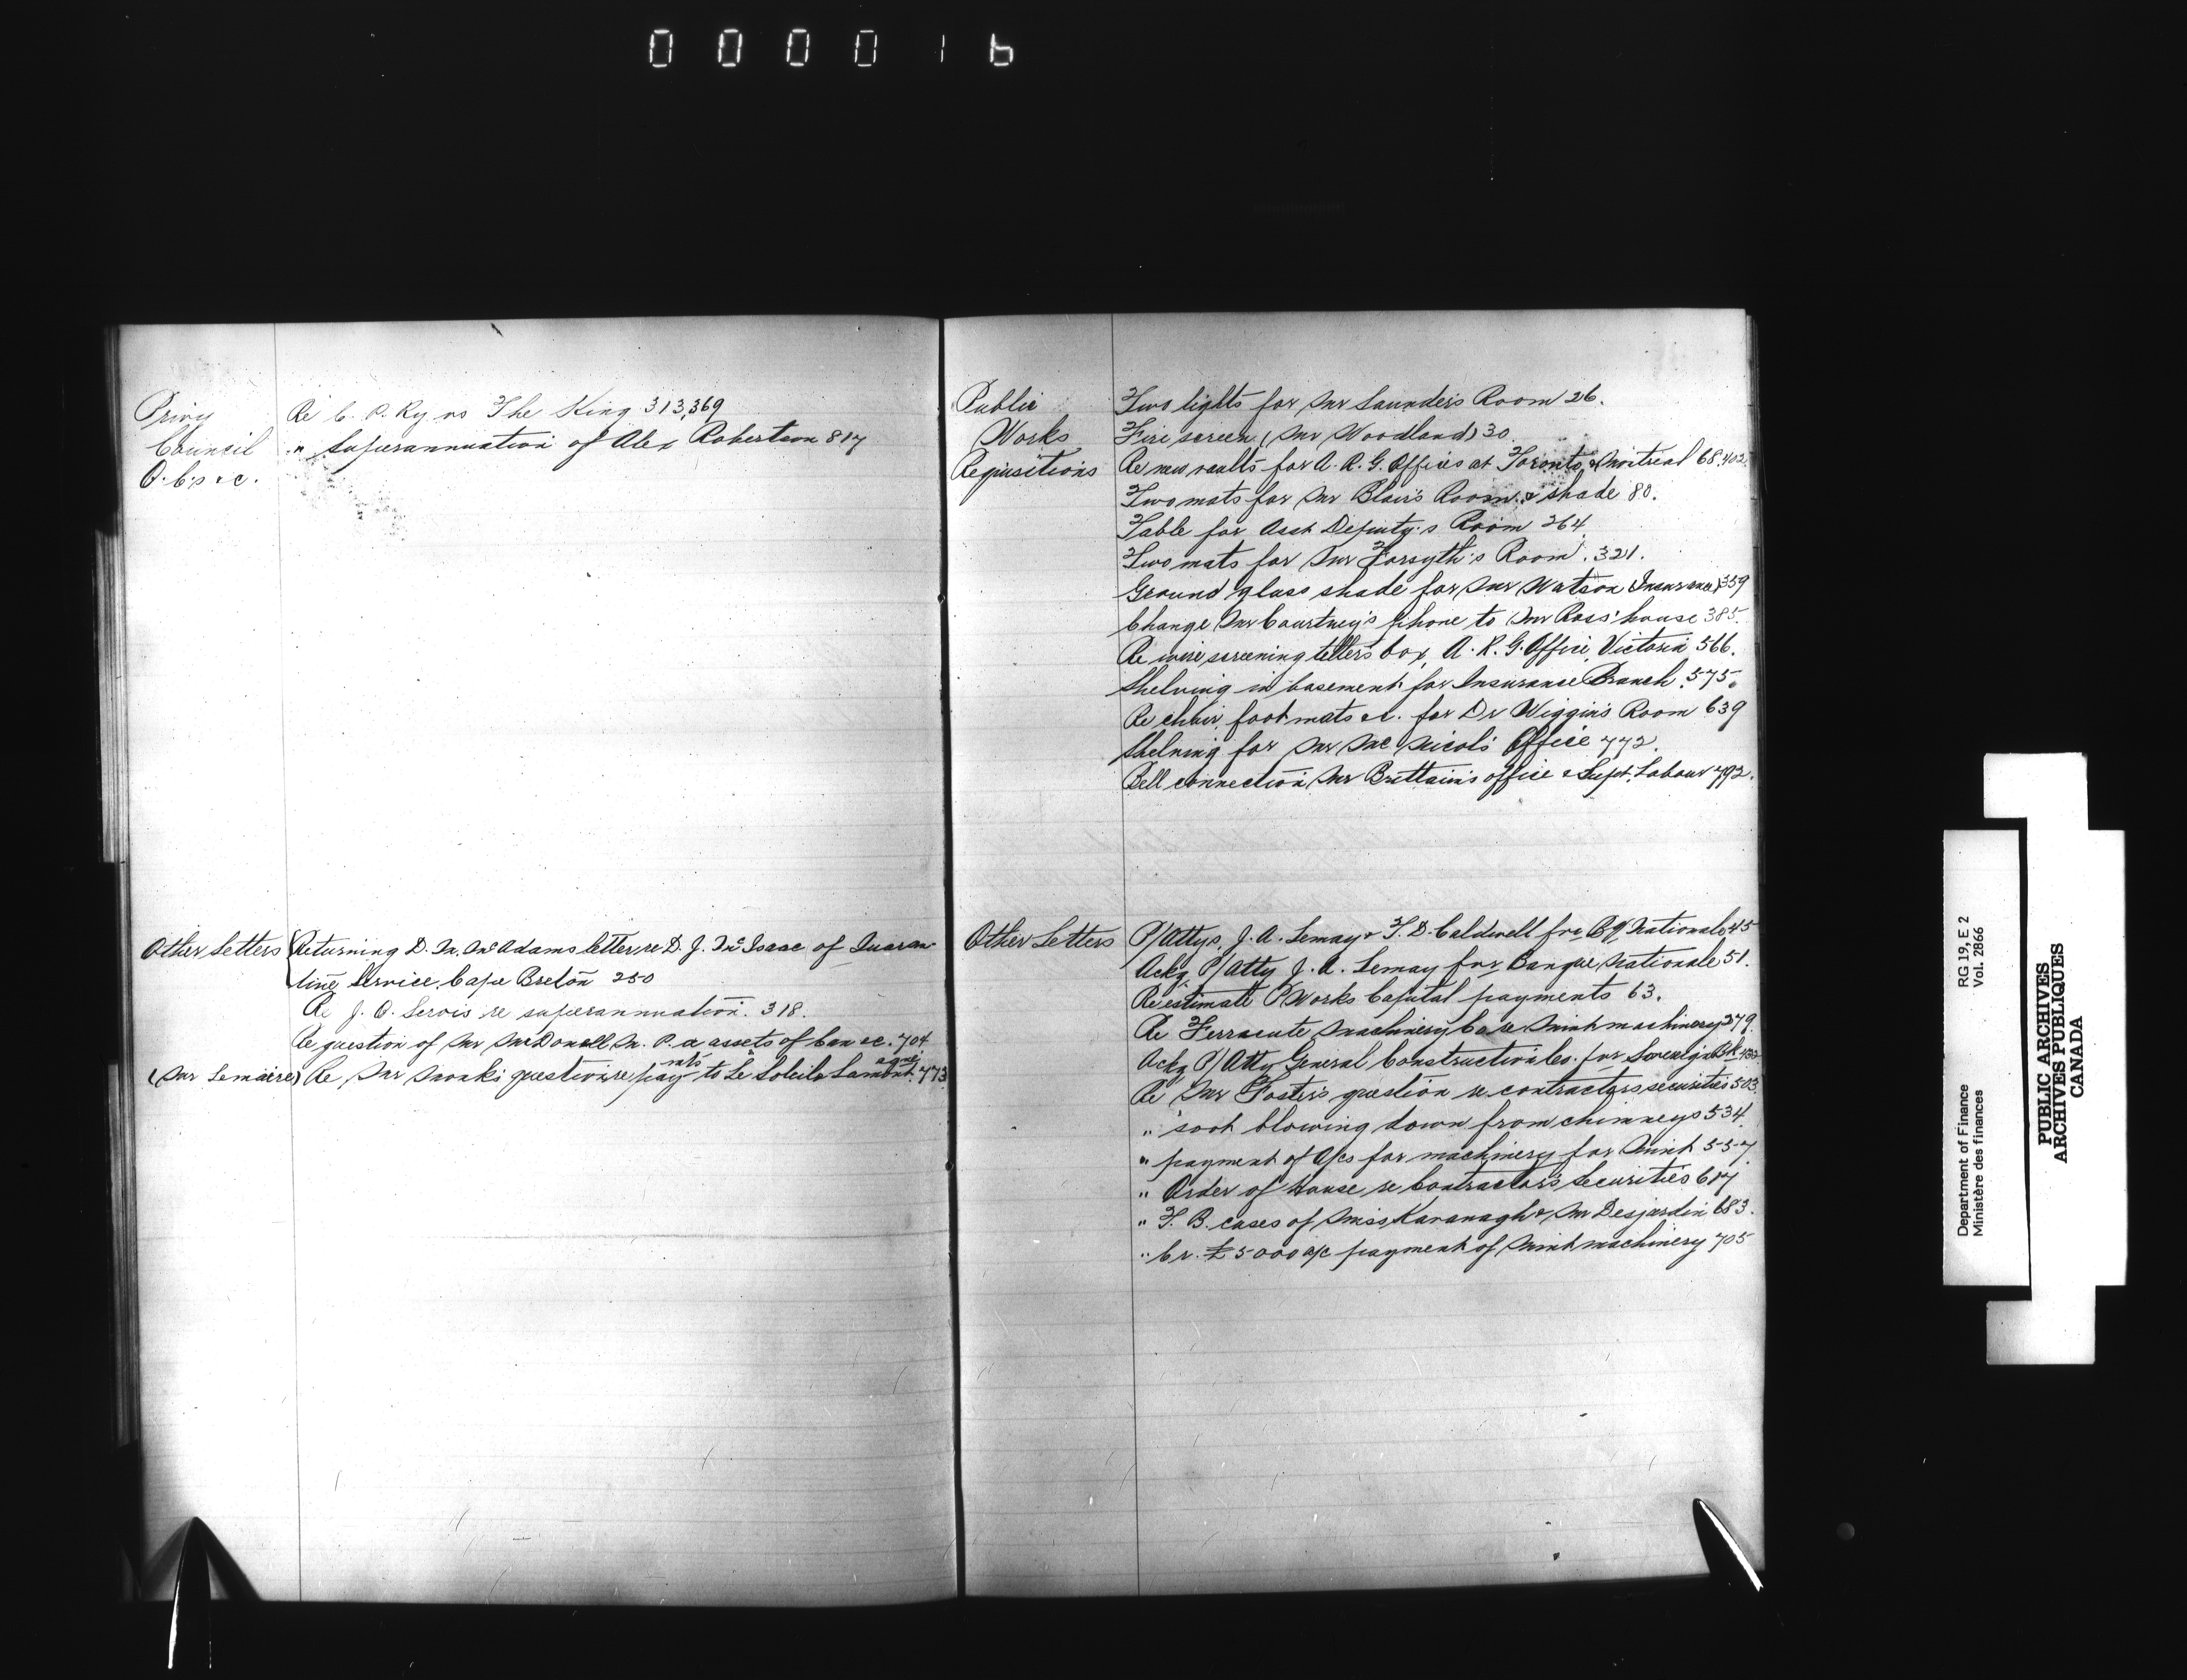 000016
Privy
Council
O.C's &c.
Re C. P. Ry vs The King 313,369
" Superannuation of Alex Robertson 817
Other Letters
Returning D. N. McAdams letter re D. J. McIsaac of Quaran-
tine Service, Cape Breton 250
Re J. O. Servois re superannuation. 318.
Re question of Mr McDonell M. P. a assets of Can &c. 704
(Mr Lemaire) Re Mr Monk's question re paymts to Le Soleil & Lamontagne 773
Public
Works
Requisitions
Two lights for Mr Saunders Room 26.
Fire screen (Mr Woodland) 30
Re new vaults for A. R. G. Offices at Toronto & Montreal 68,402.
Two mats for Mr Blair's Room & shade 80.
Table for Asst Deputy's Room 264
Two mats for Mr Forsyth's Room. 321.
Ground glass shade for Mr Watson (Insurance) 359
Change Mr Courtney's phone to Mr Ross' house 385.
Re wire screening tellers box, A. R. G. Office, Victoria 566.
Shelving in basement for Insurance Branch. 575.
Re chair, foot mats &c. for Dr Wiggins Room 639
Shelving for Mr McNicol's Office 772.
Bell connection, Mr Brittain's office & Supt. Labour 792.
Other Letters
P/Attys. J. A. Lemay & F. D. Caldwell for Bq Nationale 45
Ackg P/Atty J. A. Lemay for Banque Nationale 51.
Re estimate P Works Capital payments 63.
Re Ferracute Machinery Co re Mint machinery 279.
Ackg P/Atty General Construction Co. for Sovereign Bk
Re Mr Foster's question re contractors securities 503.
" soot blowing down from chimneys 534.
" payment of A/cs for machinery for Mint 557.
" Order of House re Contractor's Securities 617
" T. B. cases of Miss Kavanagh & Mr Desjardin 683.
" Cr. £5000 a/c payment of Mint machinery 705
Department of Finance RG 19, E 2
Ministère des finances Vol. 2866
PUBLIC ARCHIVES
ARCHIVES PUBLIQUES
CANADA